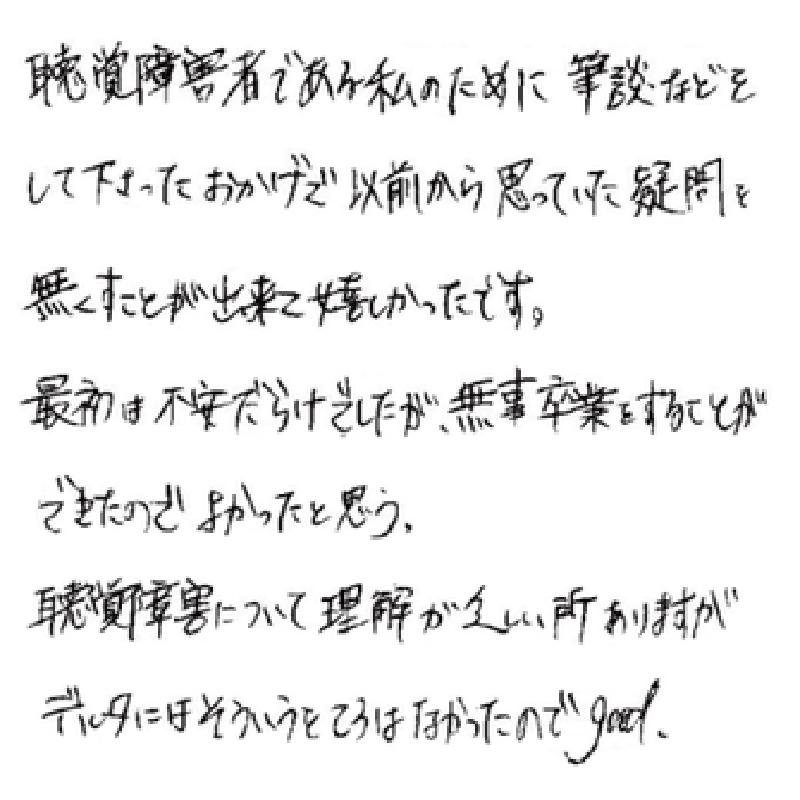 聴覚障害者である私のために筆談などを
して下さったおかげで以前から思っていた疑問を
無くすことが出来て嬉しかったです。
最初は不安だらけでしたが、無事卒業をすることが
できたのでよかったと思う。
聴覚障害について理解が乏しい所ありますが
デルタにはそういうところはなかったのでgood.